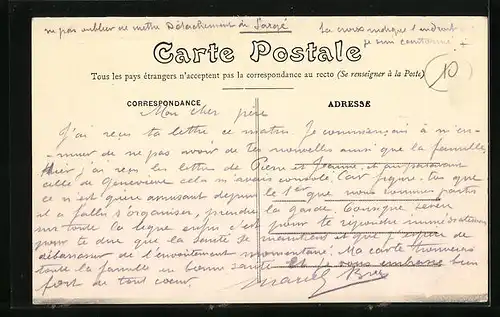 ne pas oublier de mettre Détachement de Sargé
la croix indique l'endroit
je suis cantonné +
Carte Postale
Tous les pays étrangers n'acceptent pas la correspondance au recto (Se renseigner à la Poste)
CORRESPONDANCE
ADRESSE
Mon cher père
J'ai reçu ta lettre ce matin. Je commençais à m'en-
nuyer de ne pas avoir de tes nouvelles ainsi que la famille.
Hier j'ai reçu les lettre de Pierre et Jeanne, et auparavant
celle de Geneviève cela m'avais consolé. Car figure-toi que
ce n'est guère amusant depuis le 1er que nous sommes partis
il a fallu s'organiser, prendre la garde, Consigne
sur toute la ligne enfin c'est pour te répondre immédiatement
pour te dire que la santé se maintient et que j'espère de
débarrasser de l'envoûtement momentané. Ma carte trouvera
toute la famille en bonne santé Et je vous embrasse bien
fort de tout cœur. Marcel